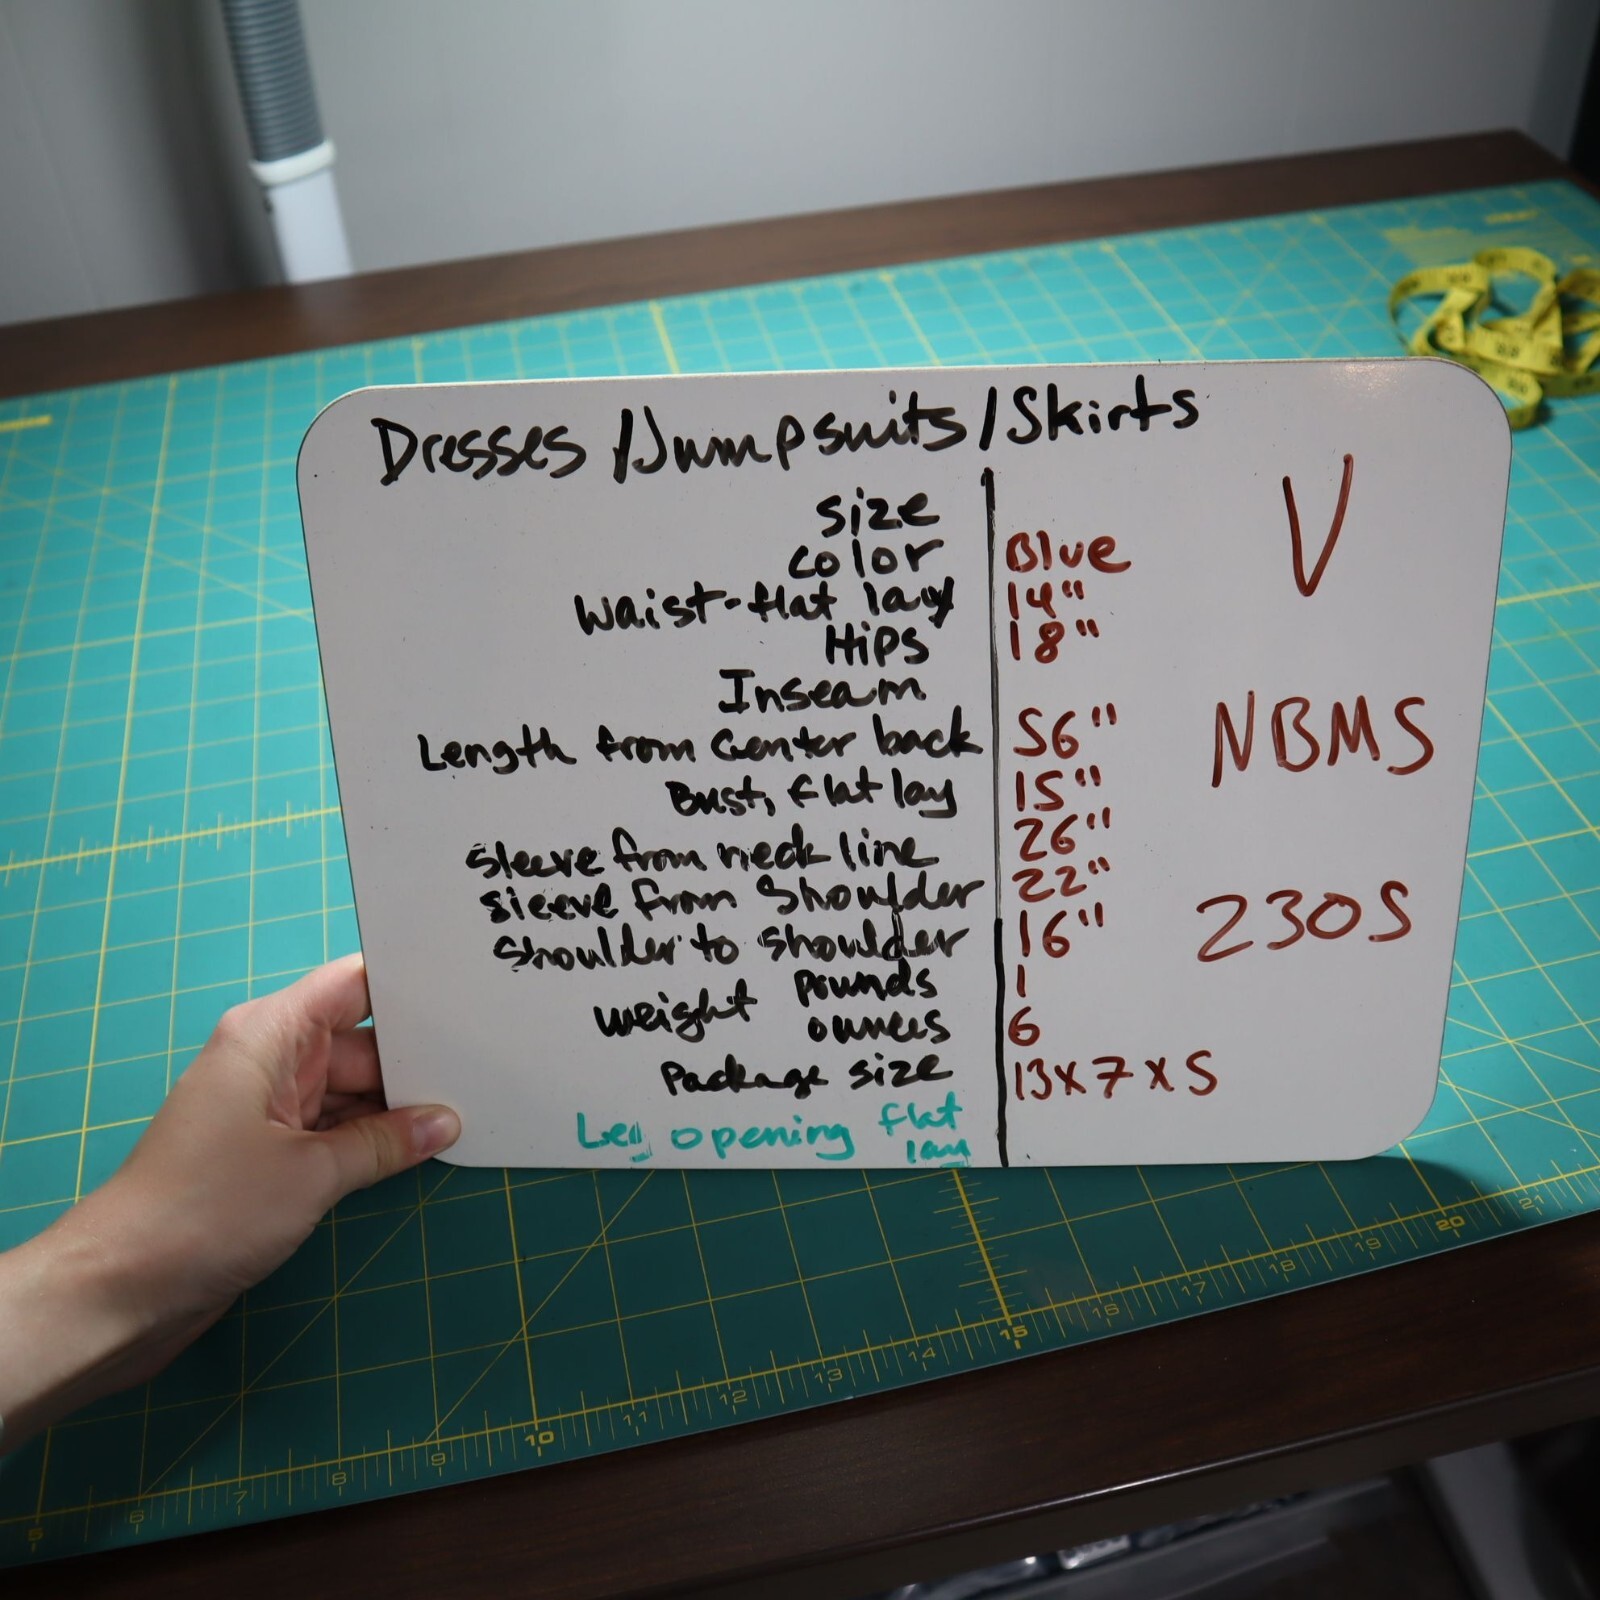 Dresses /Jumpsuits/Skirts
size
color Blue
waist-flat lay 14"
Hips 18"
Inseam
Length from Center back 56"
Bust, flat lay 15"
sleeve from neck line 26"
sleeve from Shoulder 22"
Shoulder to shoulder 16"
weight pounds 1
ounces 6
Package size 13x7x5
Leg opening flat
lay
V
NBMS
2305
5 6 7 8 9 10 11 12 13 14 15 16 17 18 19 20 21